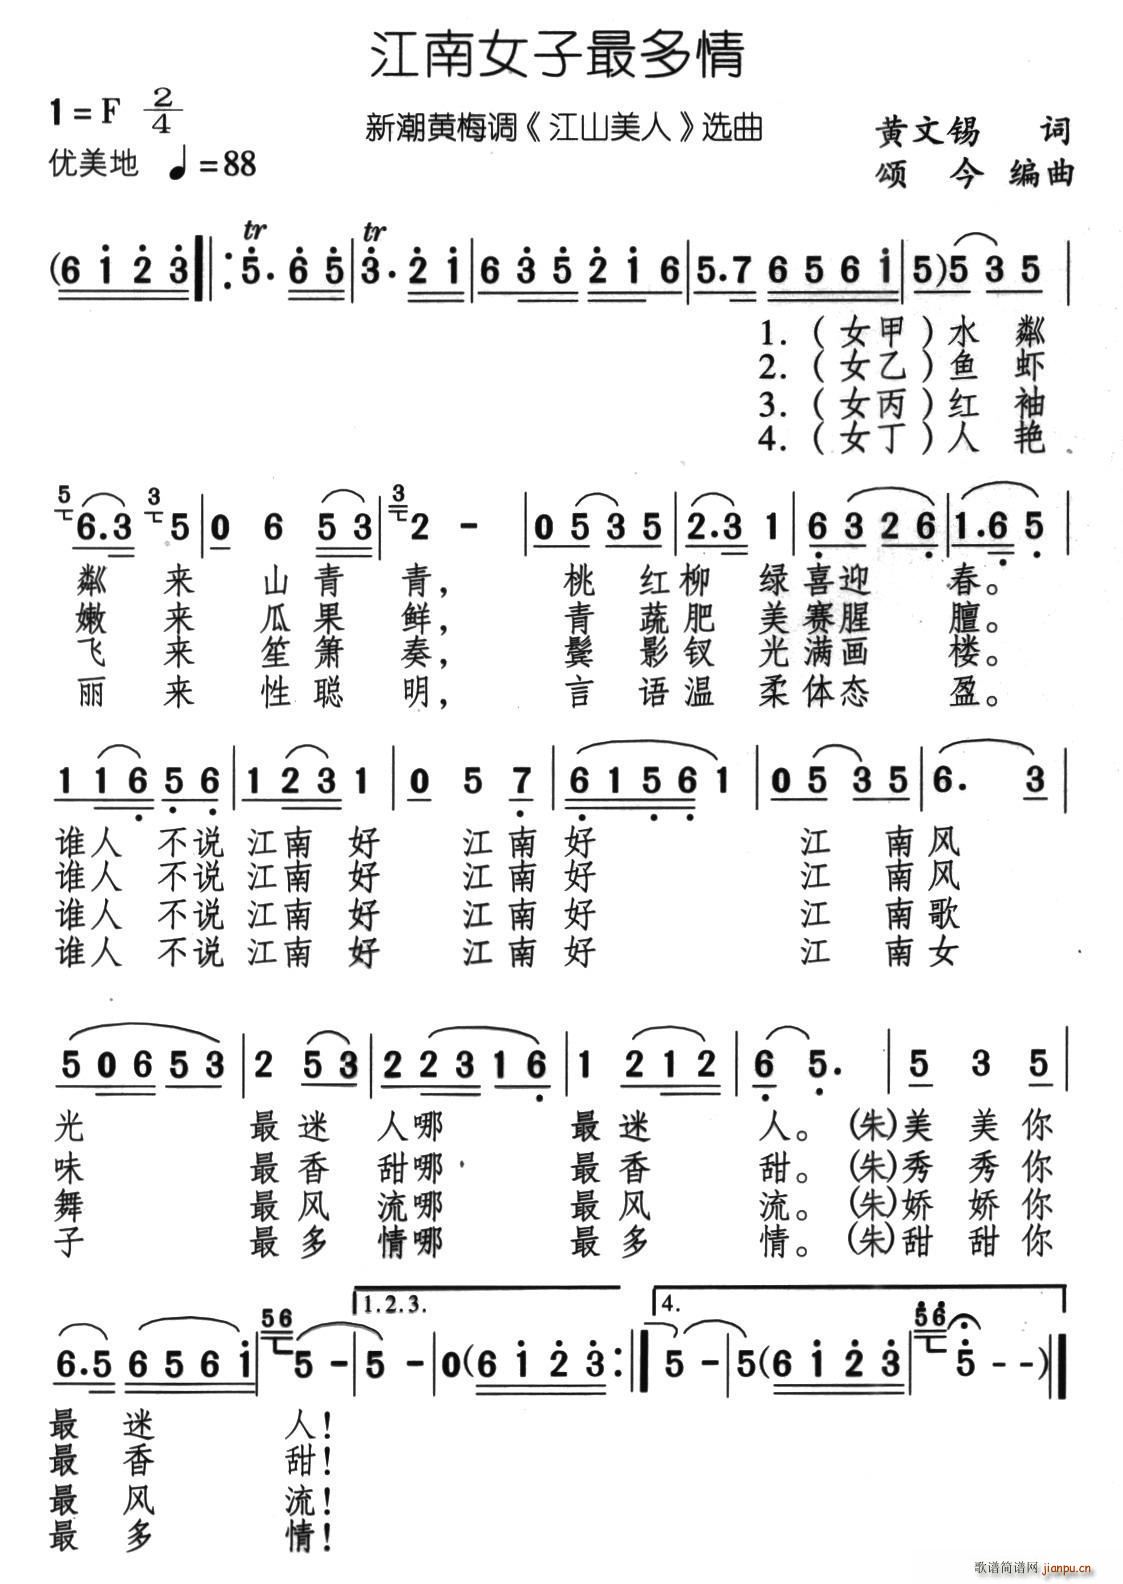 江南女子最多情
1 = F 2/4
新潮黄梅调《江山美人》选曲
黄文锡 词
优美地 ♩=88
颂今 编曲
tr tr
(6 1 2 3 5. 6 5 3. 2 1 6 3 5 2 1 6 5.7 6 5 6 1 5)5 3 5
1.(女甲)水粼
2.(女乙)鱼虾
3.(女丙)红袖
4.(女丁)人艳
5 6.3 3 5 0 6 5 3 3 2 - 0 5 3 5 2.3 1 6 3 2 6 1.6 5
粼 来 山青 青, 桃 红柳 绿喜迎 春。
嫩 来 瓜果 鲜, 青 蔬肥 美赛腥 膻。
飞 来 笙箫 奏, 鬓 影钗 光满画 楼。
丽 来 性聪 明, 言 语温 柔体态 盈。
1 1 6 5 6 1 2 3 1 0 5 7 6 1 5 6 1 0 5 3 5 6. 3
谁人 不说江南 好 江南好 江 南风
谁人 不说江南 好 江南好 江 南风
谁人 不说江南 好 江南好 江 南歌
谁人 不说江南 好 江南好 江 南女
5 0 6 5 3 2 5 3 2 2 3 1 6 1 2 1 2 6 5. 5 3 5
光 最迷 人哪 最迷 人。 (朱)美 美你
味 最香 甜哪 最香 甜。 (朱)秀 秀你
舞 最风 流哪 最风 流。 (朱)娇 娇你
子 最多 情哪 最多 情。 (朱)甜 甜你
1.2.3. 4.
6.5 6 5 6 1 56 5 - 5 - 0(6 1 2 3 5 - 5(6 1 2 3 56 5 - -)
最 迷 人!
最 香 甜!
最 风 流!
最 多 情!
歌谱简谱网 jianpu.cn